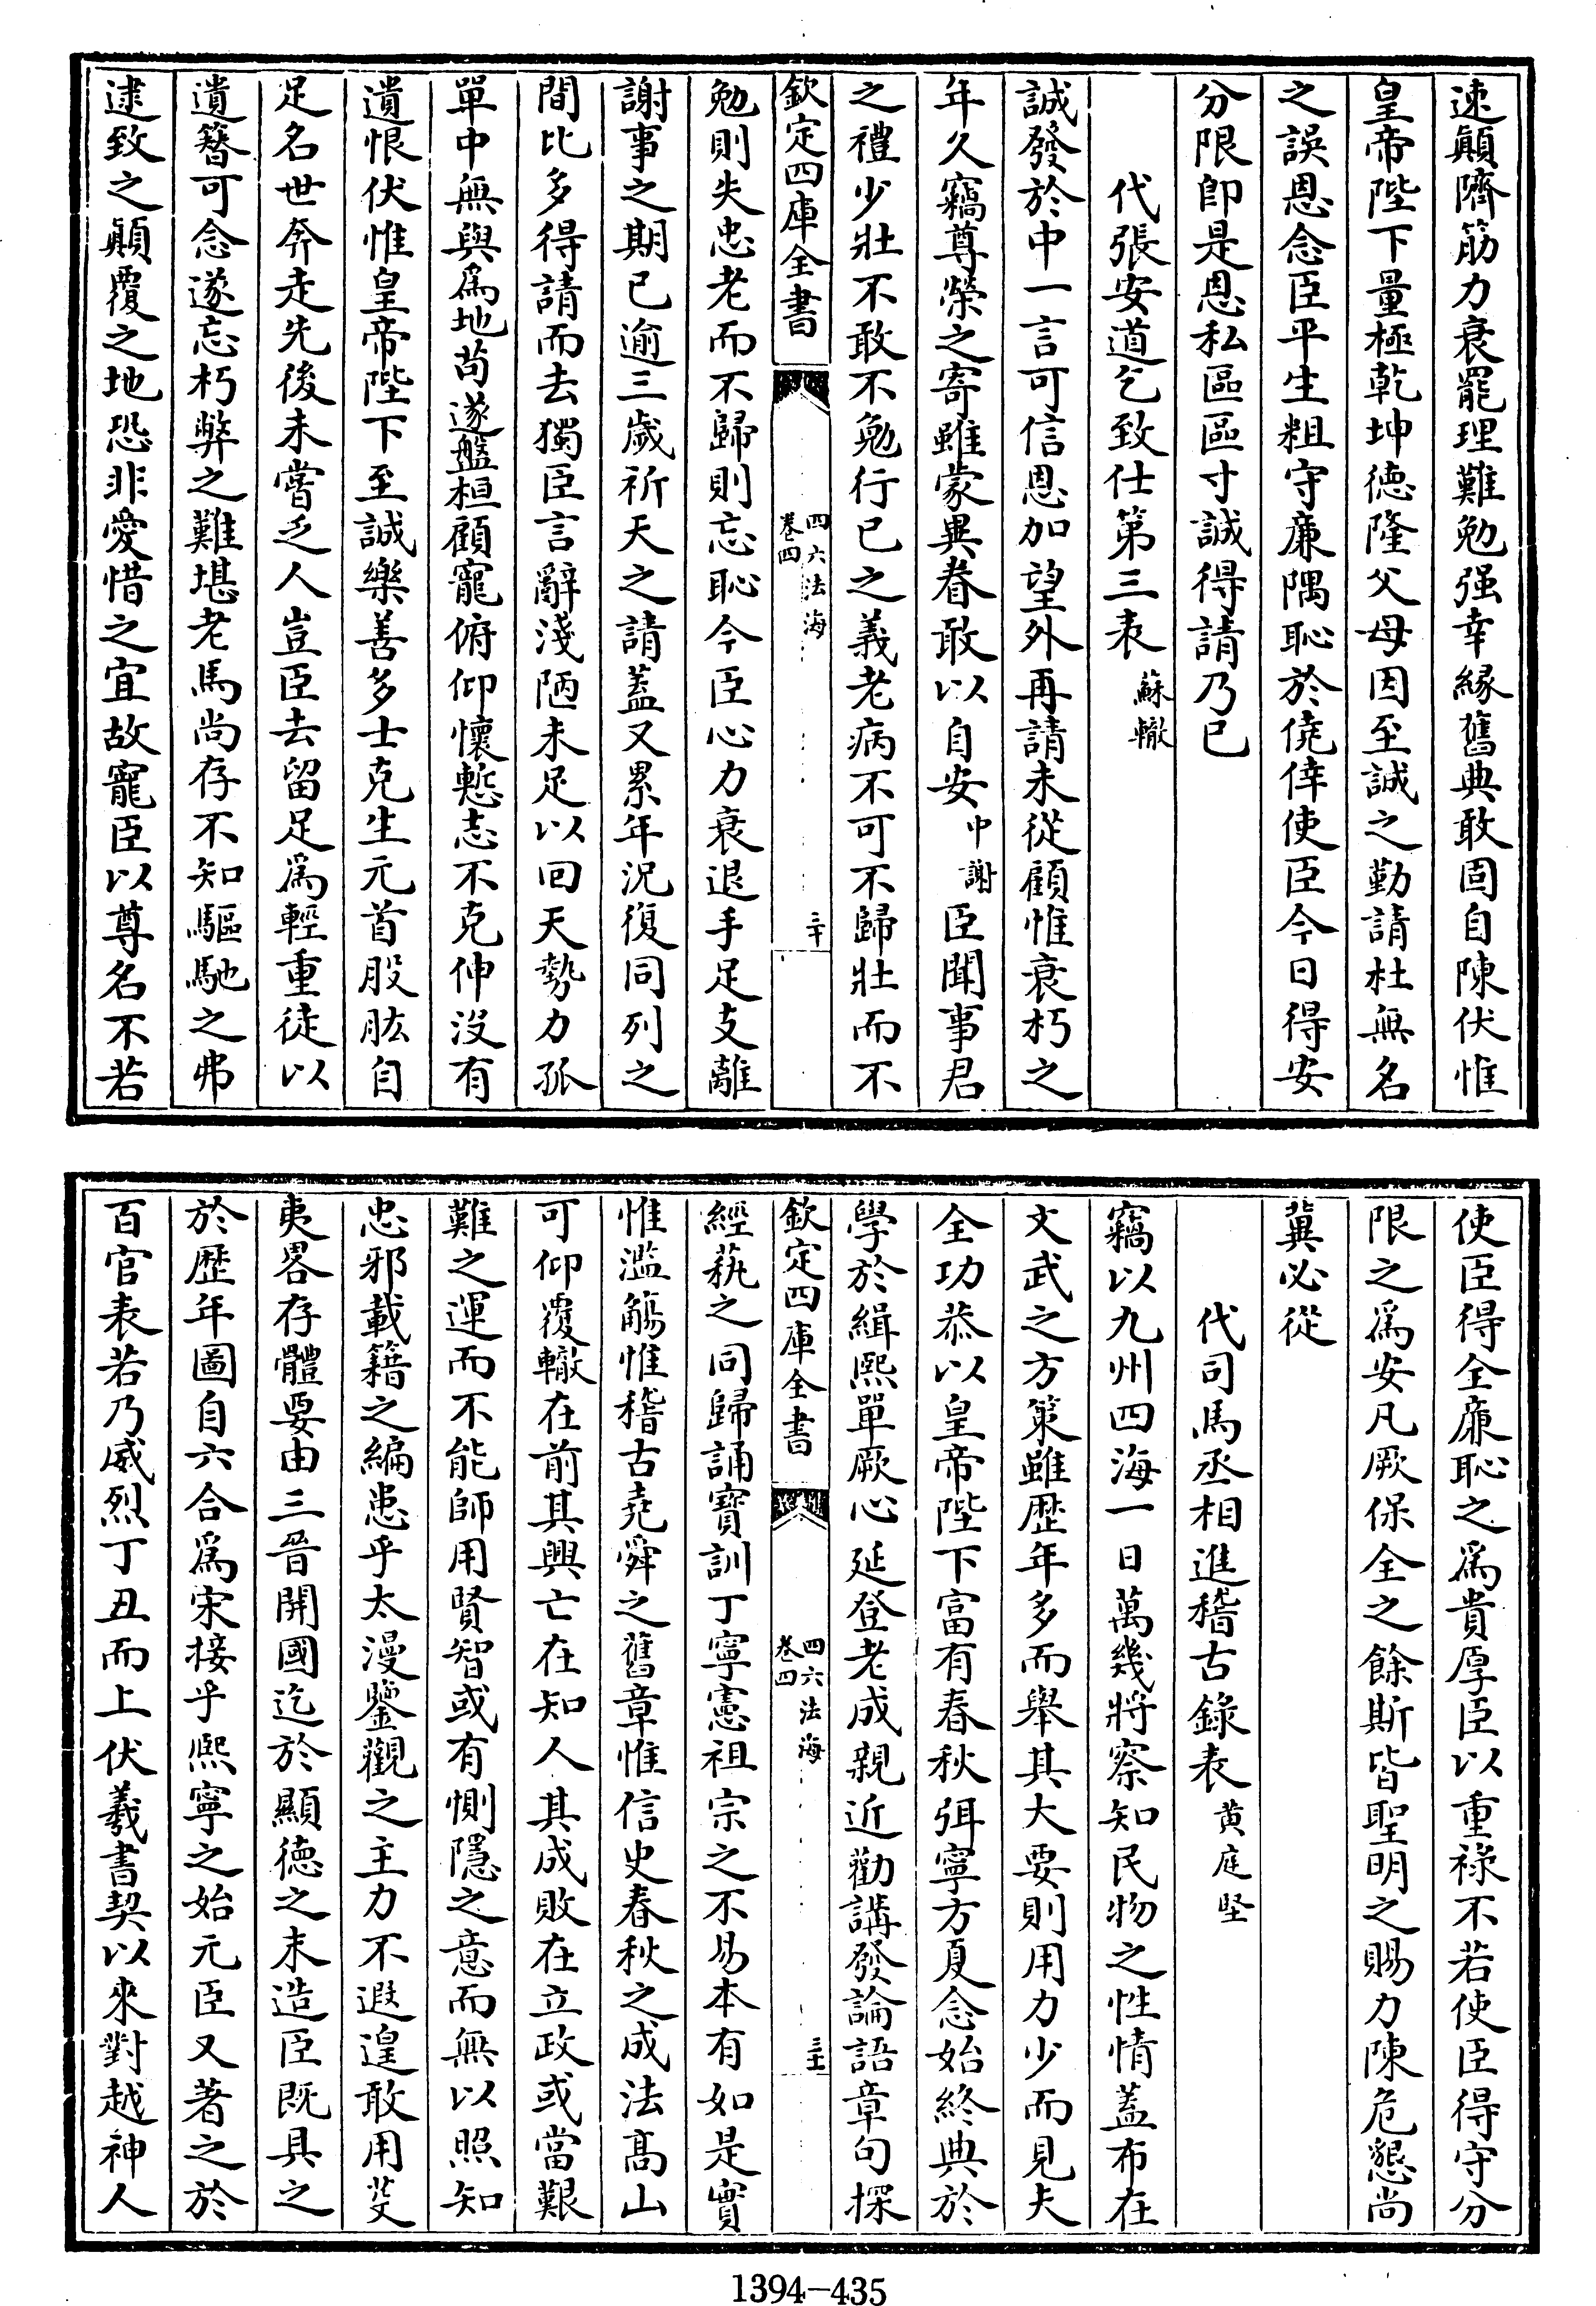 速顛隮筋力衰罷理難勉强幸縁舊典敢固自陳伏惟
皇帝陛下量極乾坤徳隆父母因至誠之勤請杜無名
之誤恩念臣平生粗守廉隅恥於僥倖使臣今日得安
分限即是恩私區區寸誠得請乃已
代張安道乞致仕第三表 蘇轍
誠發於中一言可信恩加望外再請未從顧惟衰朽之
年久竊尊榮之寄雖蒙異眷敢以自安 中謝 臣聞事君
之禮少壯不敢不勉行已之義老病不可不歸壯而不
欽定四庫全書 四六法海 卷四 三十
勉則失忠老而不歸則忘恥今臣心力衰退手足支離
謝事之期已逾三歲祈天之請蓋又累年況復同列之
間比多得請而去獨臣言辭淺陋未足以回天勢力孤
單中無與爲地苟遂盤桓顧寵俯仰懷慙志不克伸没有
遺恨伏惟皇帝陛下至誠樂善多士克生元首股肱自
足名世奔走先後未嘗乏人豈臣去留足爲輕重徒以
遺簪可念遂忘朽弊之難堪老馬尚存不知驅馳之弗
逮致之顛覆之地恐非愛惜之宜故寵臣以尊名不若
使臣得全廉恥之爲貴厚臣以重祿不若使臣得守分
限之爲安凡厥保全之餘斯皆聖明之賜力陳危懇尚
冀必從
代司馬丞相進稽古錄表 黄庭堅
竊以九州四海一日萬幾將察知民物之性情蓋布在
文武之方策雖歴年多而舉其大要則用力少而見夫
全功恭以皇帝陛下富有春秋弭寧方夏念始終典於
學於緝熙單厥心延登老成親近勸講發論語章句探
欽定四庫全書 四六法海 卷四 三十一
經蓺之同歸誦寶訓丁寧憲祖宗之不易本有如是實
惟濫觴惟稽古堯舜之舊章惟信史春秋之成法高山
可仰覆轍在前其興亡在知人其成敗在立政或當艱
難之運而不能師用賢智或有惻隱之意而無以照知
忠邪載籍之編患乎太漫鑒觀之主力不遐遑敢用芟
夷畧存體要由三晉開國迄於顯徳之末造臣既具之
於歴年圖自六合爲宋接乎熙寧之始元臣又著之於
百官表若乃威烈丁丑而上伏羲書契以來對越神人
1394-435